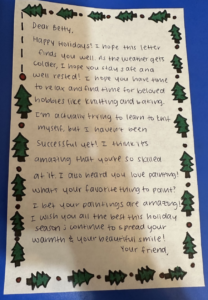 Dear Betty,
Happy Holidays! I hope this letter
finds you well. As the weather gets
colder, I hope you stay safe and
well rested! I hope you have time
to relax and find time for beloved
hobbies like knitting and
I'm actually trying to learn to knit
myself, but I haven't been
successful yet! I think it's
amazing that you're so skilled
at it. I also heard you love painting!
What's your favorite thing to paint?
I bet your paintings are amazing!
I wish you all the best this holiday
season; continue to spread your
warmth & your beautiful smile!
Your friend,